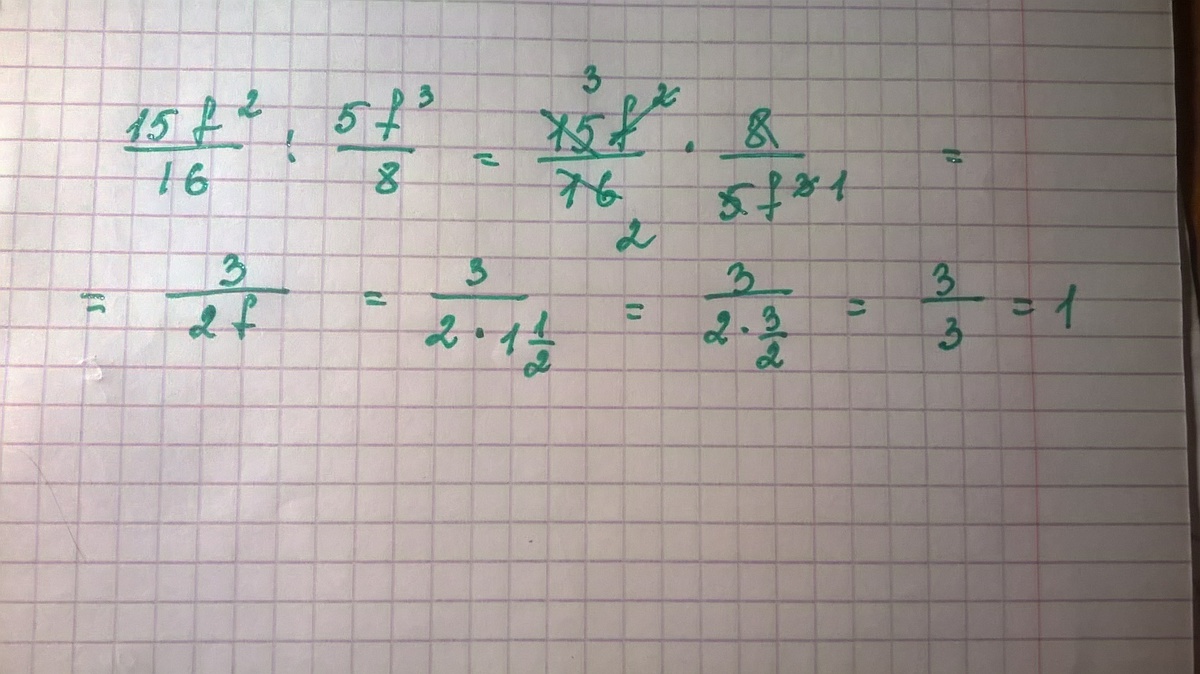 15f²/16 : 5f³/8 = 3 15f²/16 2 · 8/5f³ 1 =
= 3/2f = 3/(2·1 1/2) = 3/(2·3/2) = 3/3 = 1